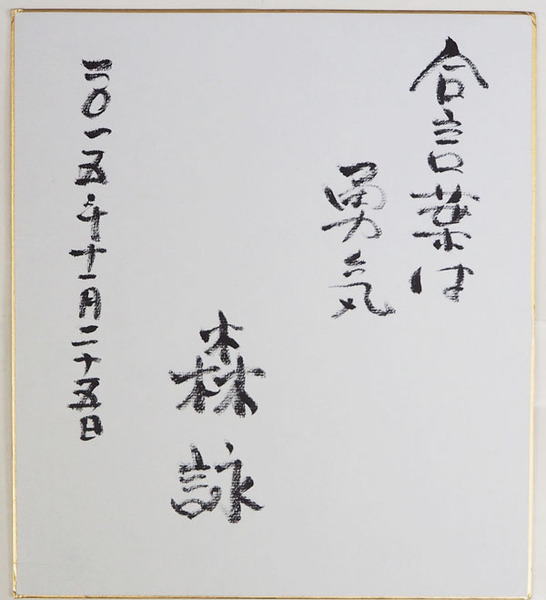 合言葉は
勇気
森詠
二〇一五年十一月二十五日